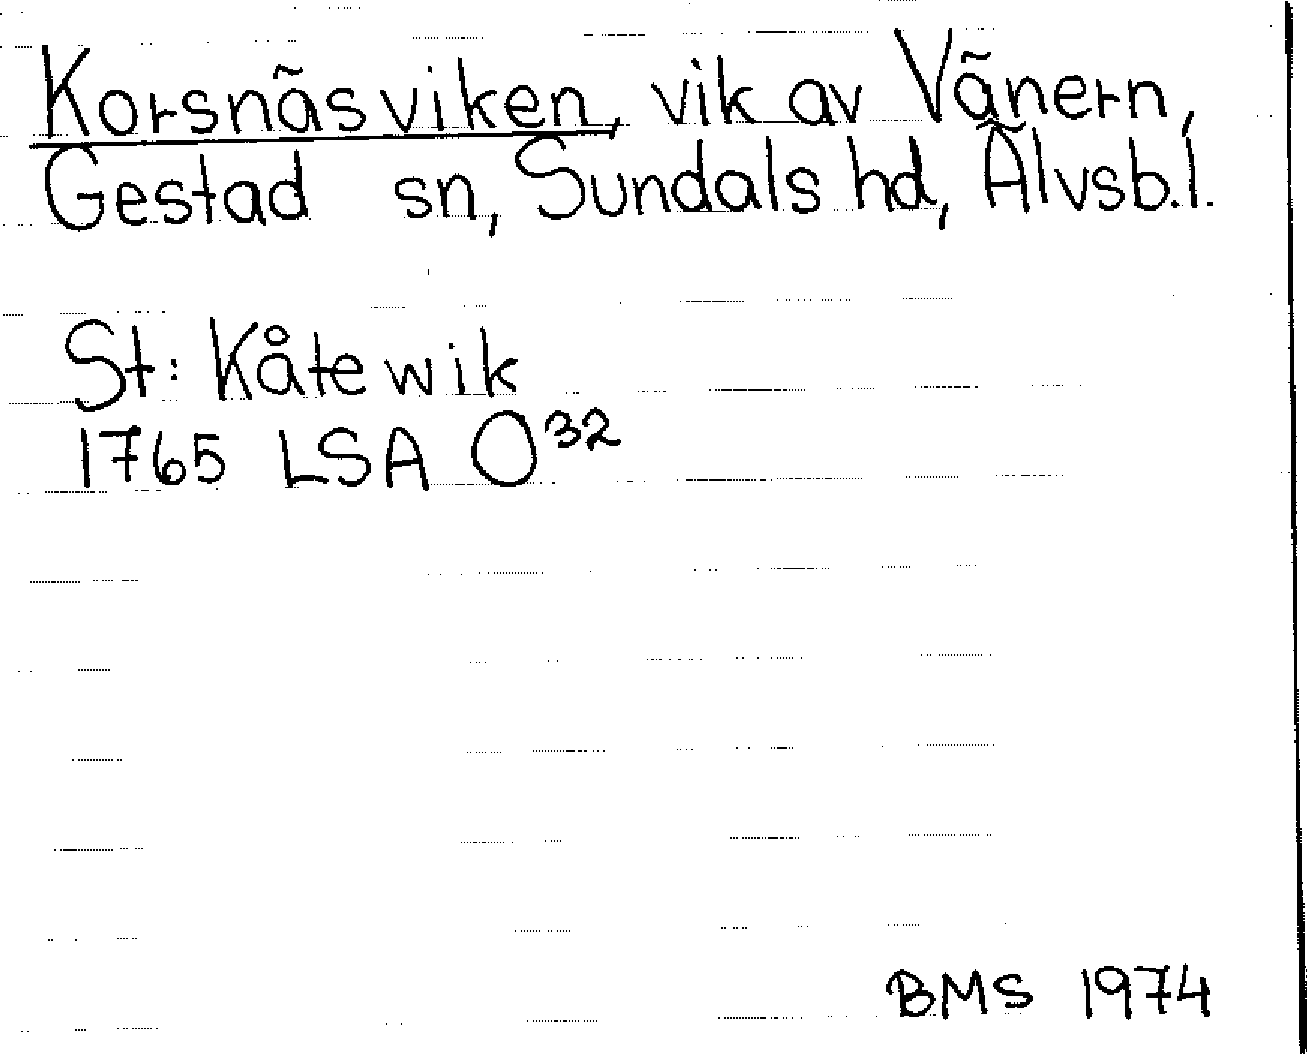 Korsnäsviken, vik av Vänern,
Gestad sn, Sundals hd, Älvsb.l.
St: Kåtewik
1765 LSA O³²
BMS 1974